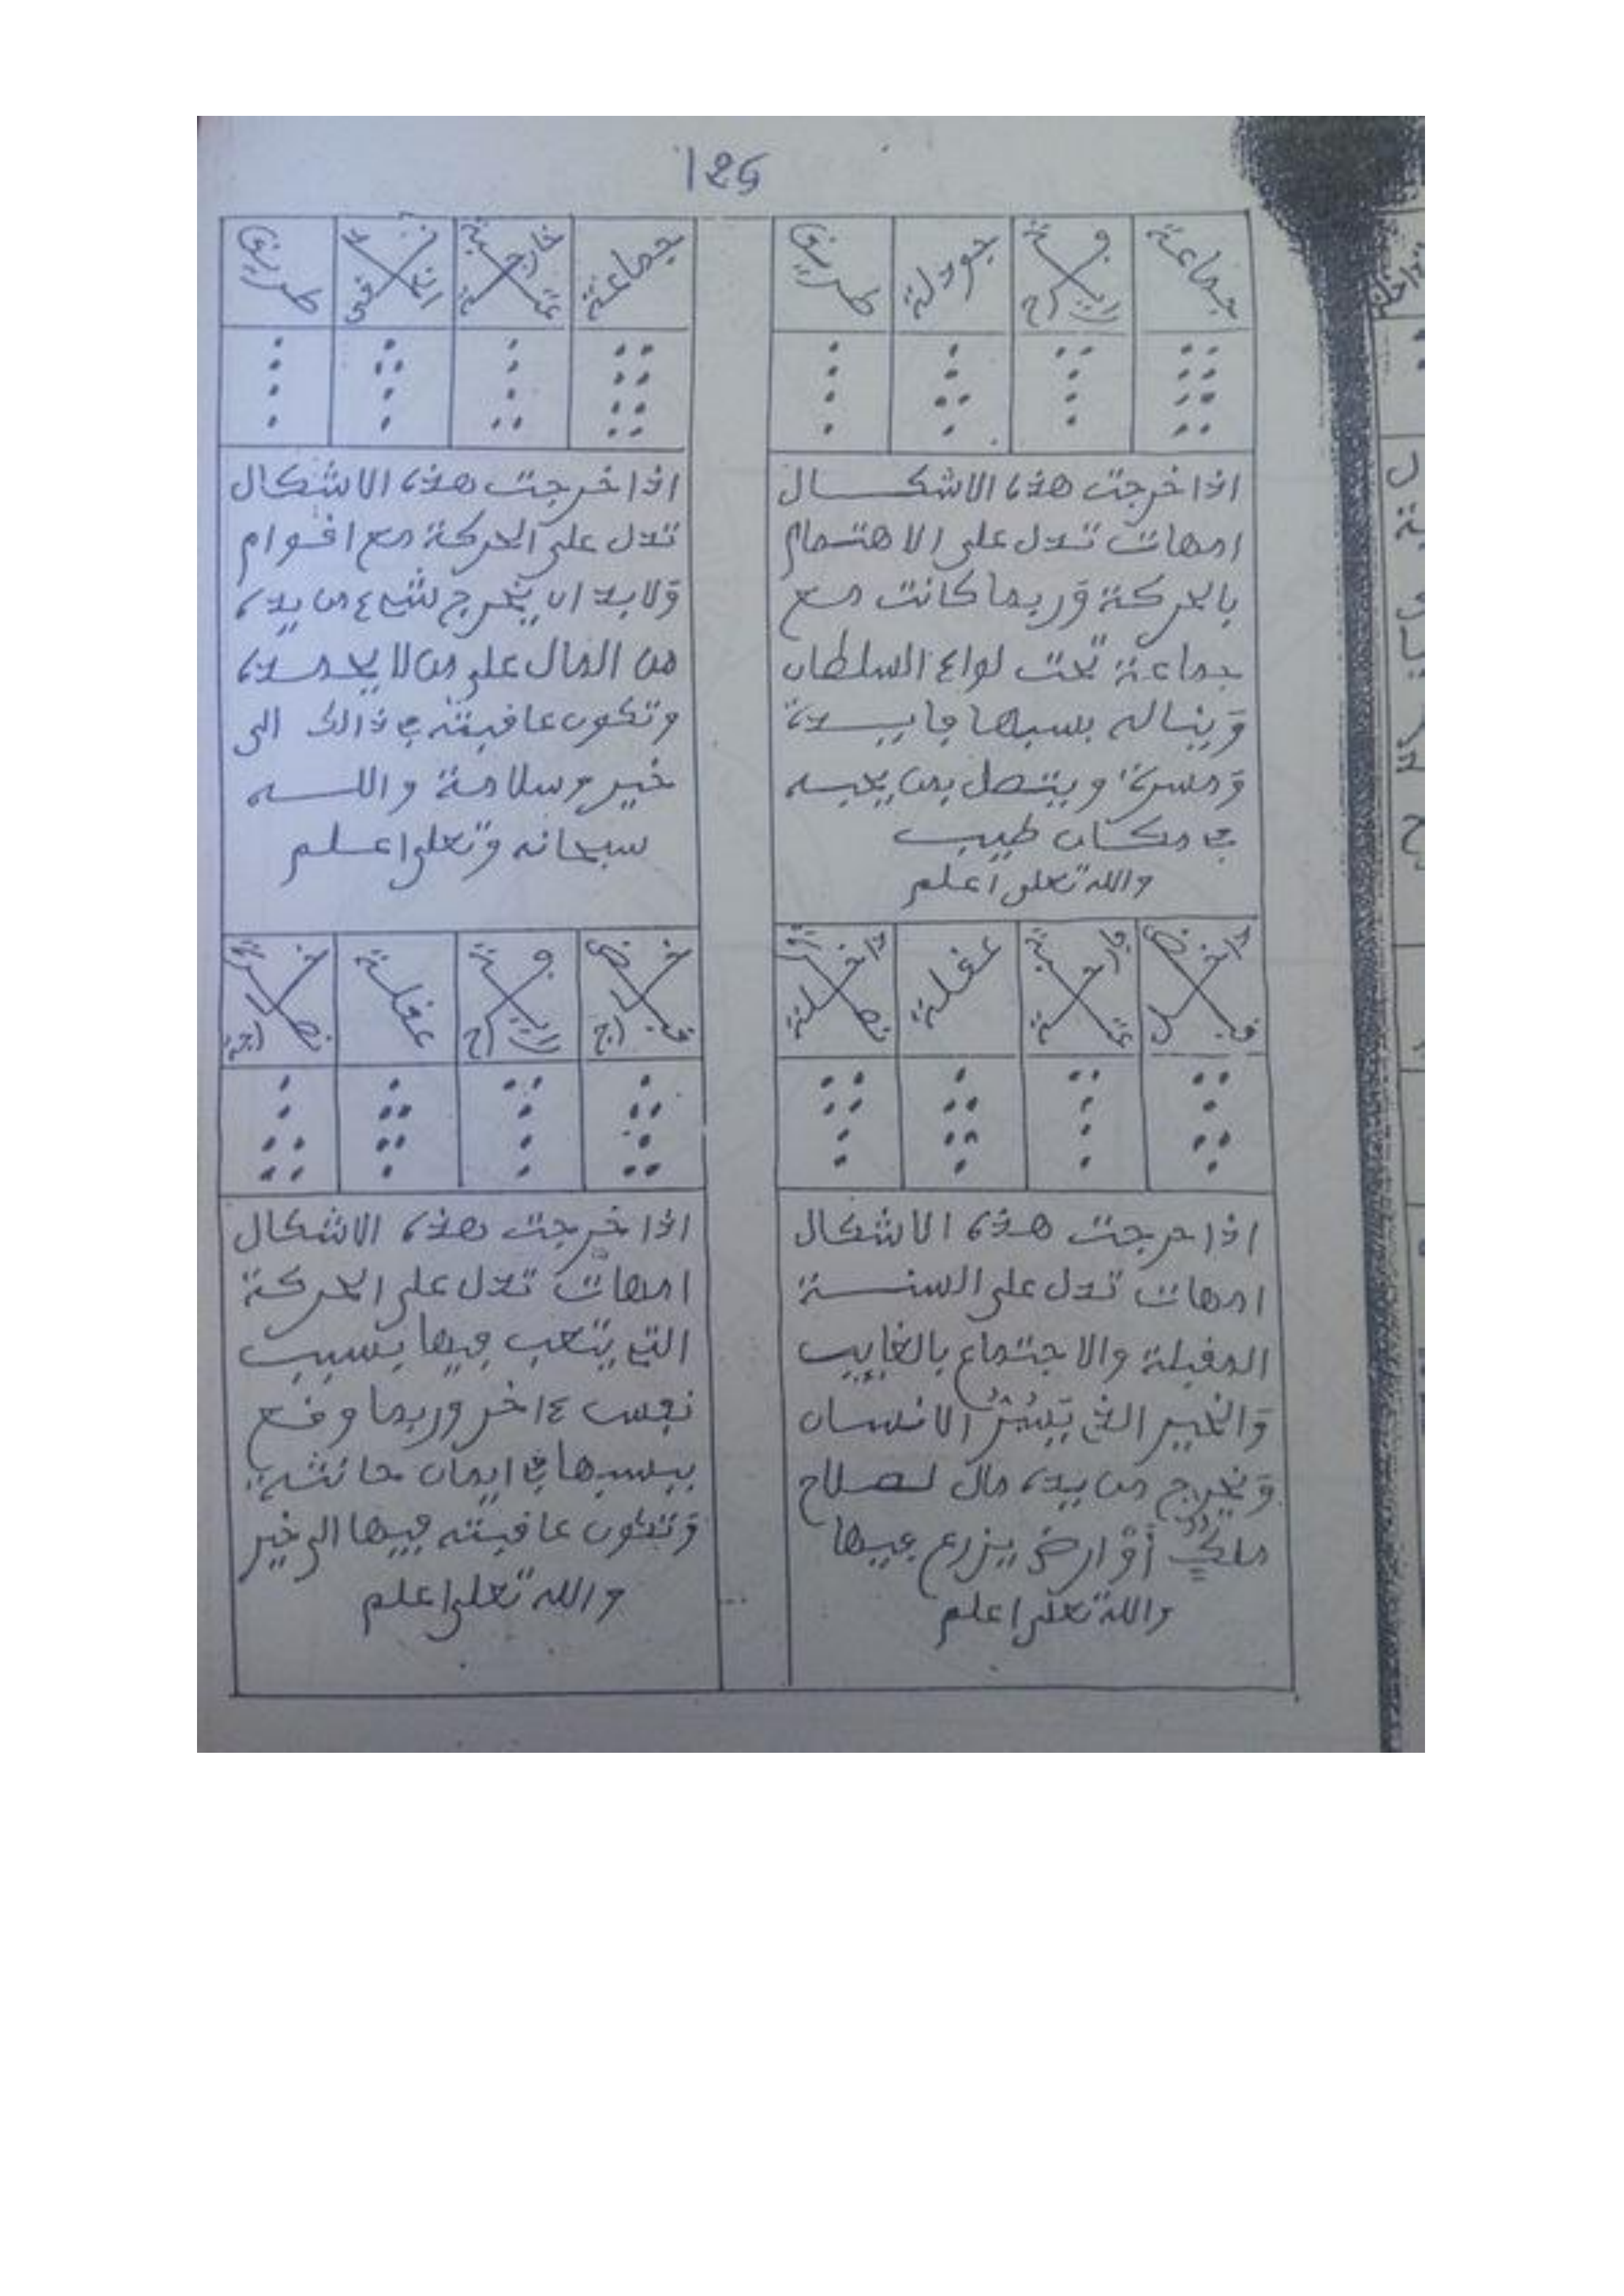 125
جماعة
راية فرح
جودلة
طريق
اذا خرجت هذه الاشكال
امهات تدل على الاهتمام
بالحركة وربما كانت مع
جماعة تحت لواء السلطان
ويناله بسببها فايدة
ومسرة ويتصل بمن يحبه
في مكان طيب
والله تعلى اعلم
جماعة
عتبة خارجة
نقي الخد
طريق
اذا خرجت هذه الاشكال
تدل على الحركة مع اقوام
ولابد ان يخرج شيء من يده
من المال على من لا يحمده
وتكون عاقبته في ذالك الى
خير وسلامة والله
سبحانه وتعلى اعلم
قبض داخل
راية فرح
عقلة
نصرة داخلة
اذا خرجت هذه الاشكال
امهات تدل على السنة
المقبلة والاجتماع بالغايب
والخير الذي يبشر الانسان
ويخرج من يده مال لصلاح
ملك أو ارض يزرع فيها
والله تعلى اعلم
قبض خارج
راية فرح
عقلة
نصرة خارجة
اذا خرجت هذه الاشكال
امهات تدل على الحركة
التي يتعب فيها بسبب
نفس ءاخر وربما وقع
بسببها في ايمان حانثة
وتكون عاقبته فيها الى خير
والله تعلى اعلم